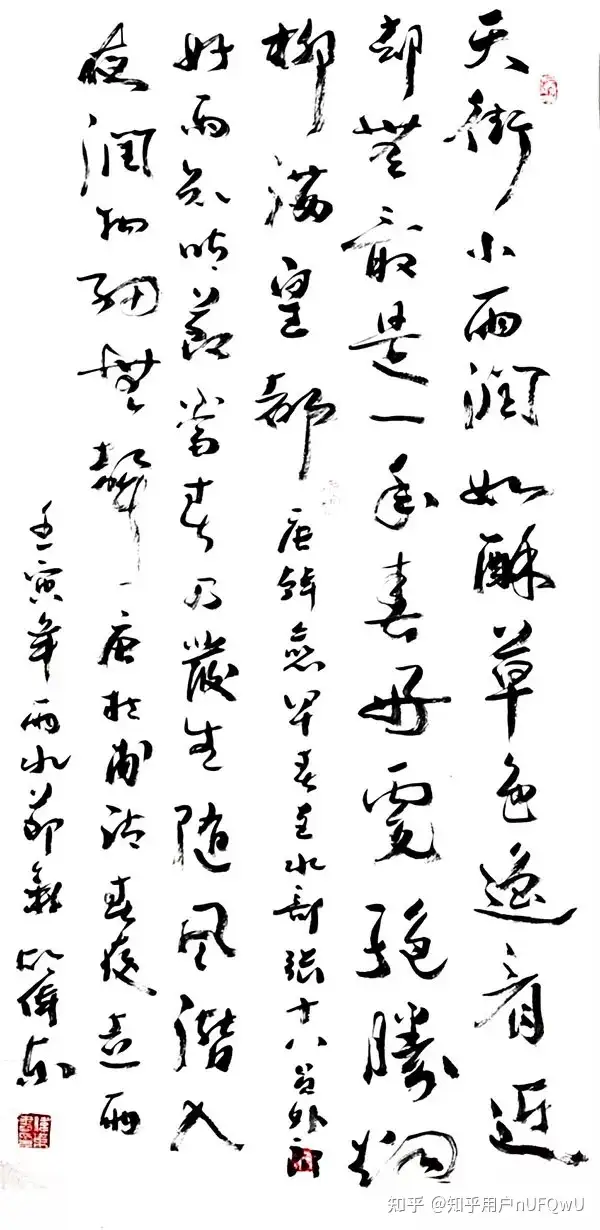 天街小雨润如酥草色遥看近
却無最是一年春好處絕勝烟
柳满皇都 唐韓愈早春呈水部張十八员外
好雨知时節當春乃發生随风潜入
夜润物细無聲 唐杜甫诗春夜喜雨
壬寅年雨水節
知乎 @知乎用户nUFQwU